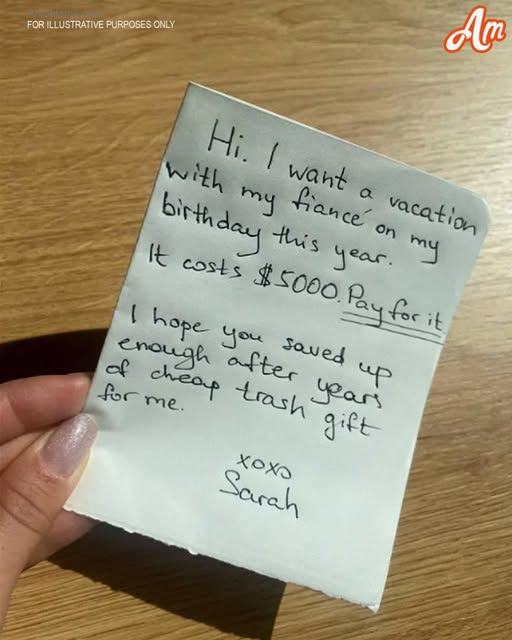 FOR ILLUSTRATIVE PURPOSES ONLY
Am
Hi. I want a vacation
with my fiancé on my
birthday this year.
It costs $5000. Pay for it.
I hope you saved up
enough after years
of cheap trash gift
for me.
xoxo
Sarah